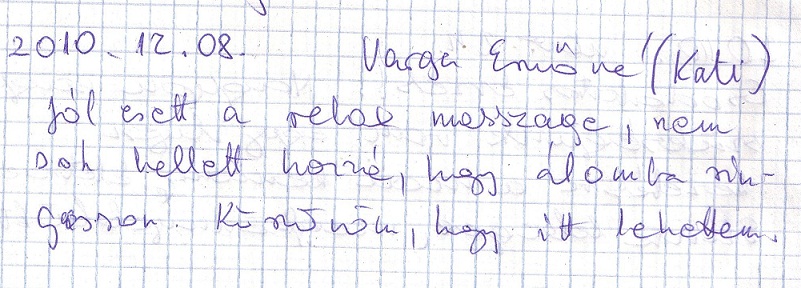 2010. 12. 08. Varga Ernőné (Kati)
Jól esett a relax masszage, nem
sok kellett hozzá, hogy álomba rin-
gasson. Köszönöm, hogy itt lehettem.